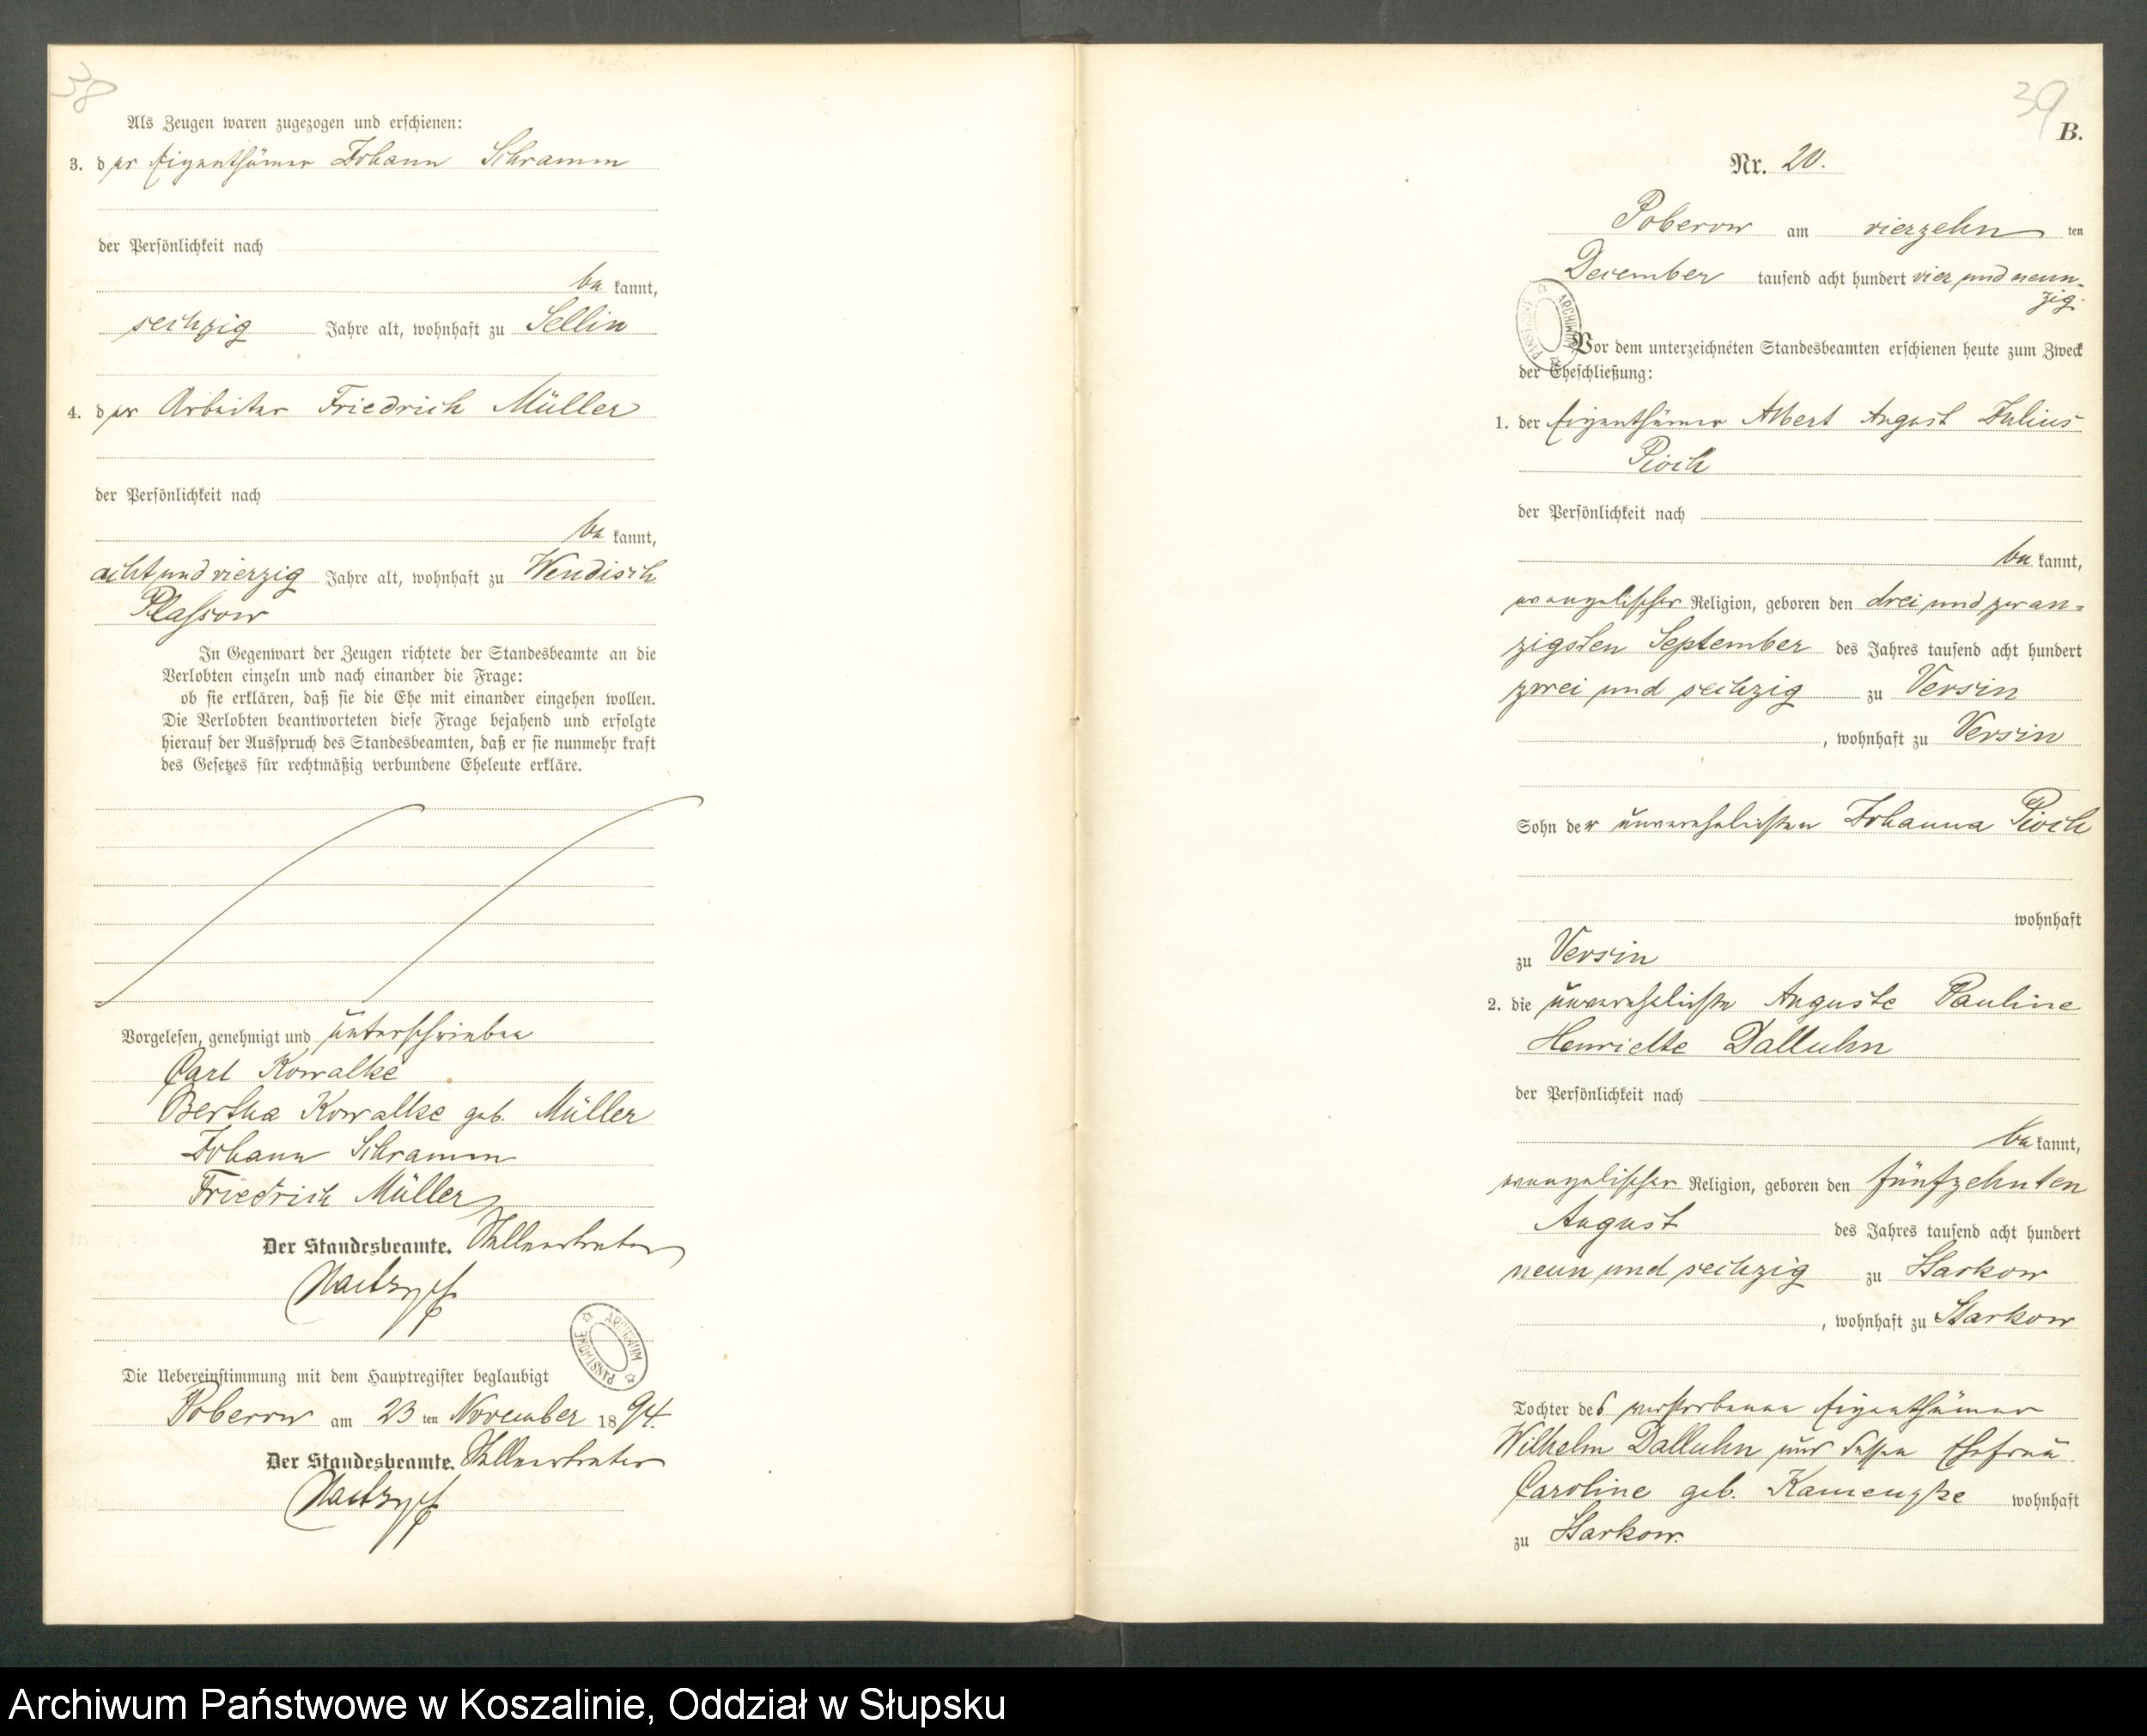 38
Als Zeugen waren zugezogen und erschienen:
3. der Eigenthümer Johann Schramm
der Persönlichkeit nach
be kannt,
sechzig Jahre alt, wohnhaft zu Sellin
4. der Arbeiter Friedrich Müller
der Persönlichkeit nach
be kannt,
acht und vierzig Jahre alt, wohnhaft zu Wendisch
Plassow
In Gegenwart der Zeugen richtete der Standesbeamte an die
Verlobten einzeln und nach einander die Frage:
ob sie erklären, daß sie die Ehe mit einander eingehen wollen.
Die Verlobten beantworteten diese Frage bejahend und erfolgte
hierauf der Ausspruch des Standesbeamten, daß er sie nunmehr kraft
des Gesetzes für rechtmäßig verbundene Eheleute erkläre.
Vorgelesen, genehmigt und unterschrieben
Carl Kowalke
Bertha Kowalke geb. Müller
Johann Schramm
Friedrich Müller
Der Standesbeamte. Stellvertreter
ARCHIWUM PAŃSTWOWE
Die Uebereinstimmung mit dem Hauptregister beglaubigt
Poberow am 23 ten November 18 94.
Der Standesbeamte. Stellvertreter
39
B.
Nr. 20.
Poberow am vierzehn ten
December tausend acht hundert vier und neun-
zig.
ARCHIWUM PAŃSTWOWE
Vor dem unterzeichneten Standesbeamten erschienen heute zum Zweck
der Eheschließung:
1. der Eigenthümer Albert August Julius
Pioch
der Persönlichkeit nach
be kannt,
evangelischer Religion, geboren den drei und zwan=
zigsten September des Jahres tausend acht hundert
zwei und sechzig zu Versin
, wohnhaft zu Versin
Sohn der unverehelichten Johanna Pioch
wohnhaft
zu Versin
2. die unverehelichte Auguste Pauline
Henriette Dalluhn
der Persönlichkeit nach
be kannt,
evangelischer Religion, geboren den fünfzehnten
August des Jahres tausend acht hundert
neun und sechzig zu Starkow
, wohnhaft zu Starkow
Tochter des verstorbenen Eigenthümer
Wilhelm Dalluhn und dessen Ehefrau
Caroline geb. Kamengke wohnhaft
zu Starkow.
Archiwum Państwowe w Koszalinie, Oddział w Słupsku